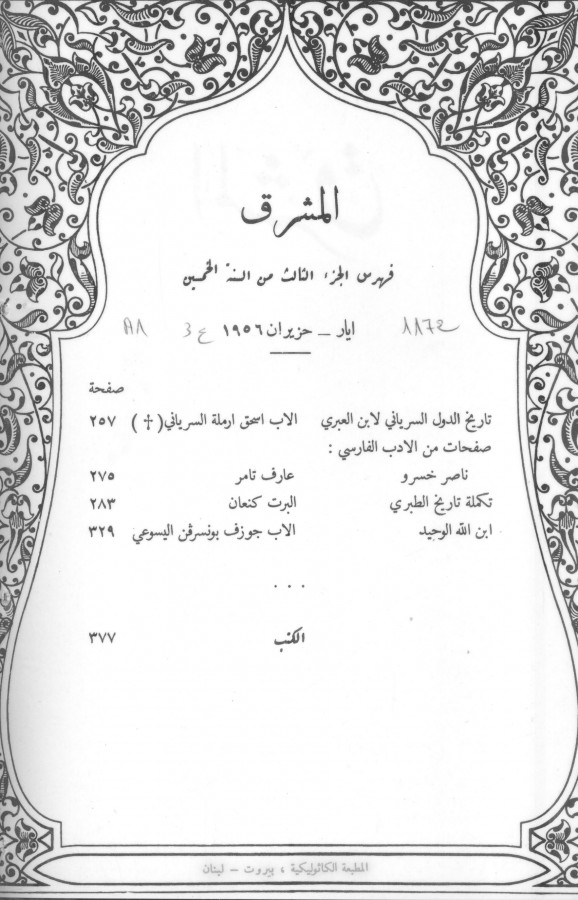 المشرق
فهرس الجزء الثالث من السنة الخمسين
ايار – حزيران ١٩٥٦
1172
ع 3
A1
صفحة
تاريخ الدول السرياني لابن العبري الاب اسحق ارملة السرياني (†) ٢٥٧
صفحات من الادب الفارسي :
ناصر خسرو عارف تامر ٢٧٥
تكملة تاريخ الطبري البرت كنعان ٢٨٣
ابن الله الوحيد الاب جوزف بونسرڤن اليسوعي ٣٢٩
. . .
الكتب ٣٧٧
المطبعة الكاثوليكية ، بيروت – لبنان